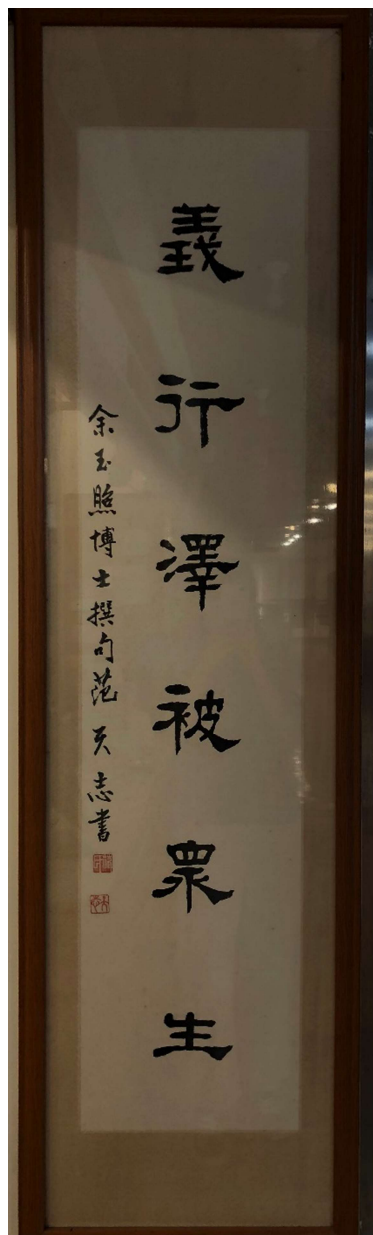 義行澤被眾生
余玉照博士撰句范天志書